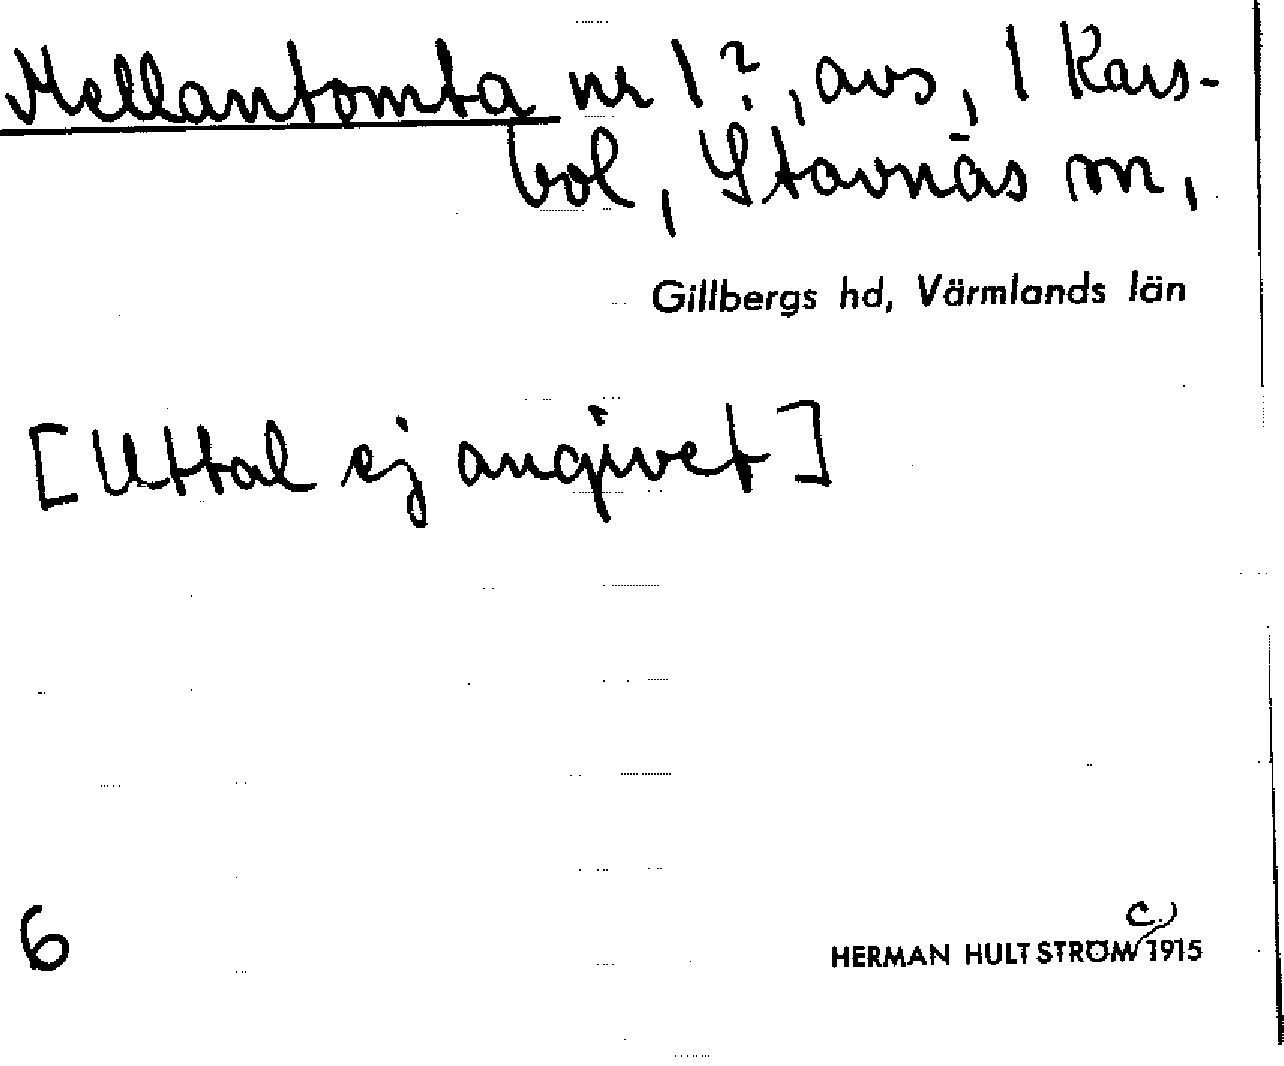 Mellantomta nr 1?, avs, 1 Kars-
bol, Stavnäs sn,
Gillbergs hd, Värmlands län
[Uttal ej angivet]
6
c.
HERMAN HULTSTRÖM 1915